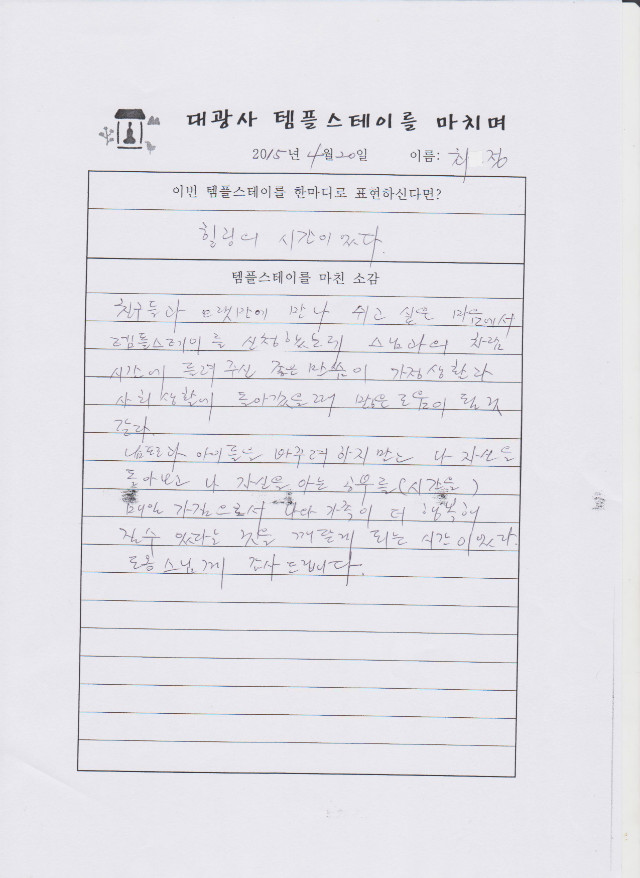 대광사 템플스테이를 마치며
2015년 4월 20일 이름: 최 정
이번 템플스테이를 한마디로 표현하신다면?
힐링의 시간이었다.
템플스테이를 마친 소감
친구들과 오랫만에 만나 쉬고 싶은 마음에서
템플스테이를 신청했는데 스님과의 차담
시간에 들려주신 좋은 말씀이 가정생활과
사회생활에 돌아갔을때 많은 도움이 될것
같다.
남편과 아이들을 바꾸려 하지만는 나 자신을
돌아보고 나 자신을 아는 공부를 (시간을)
매일 가짐으로서 나와 가족이 더 행복해
질수 있다는 것을 깨닫게 되는 시간이었다.
도웅스님께 감사드립니다.